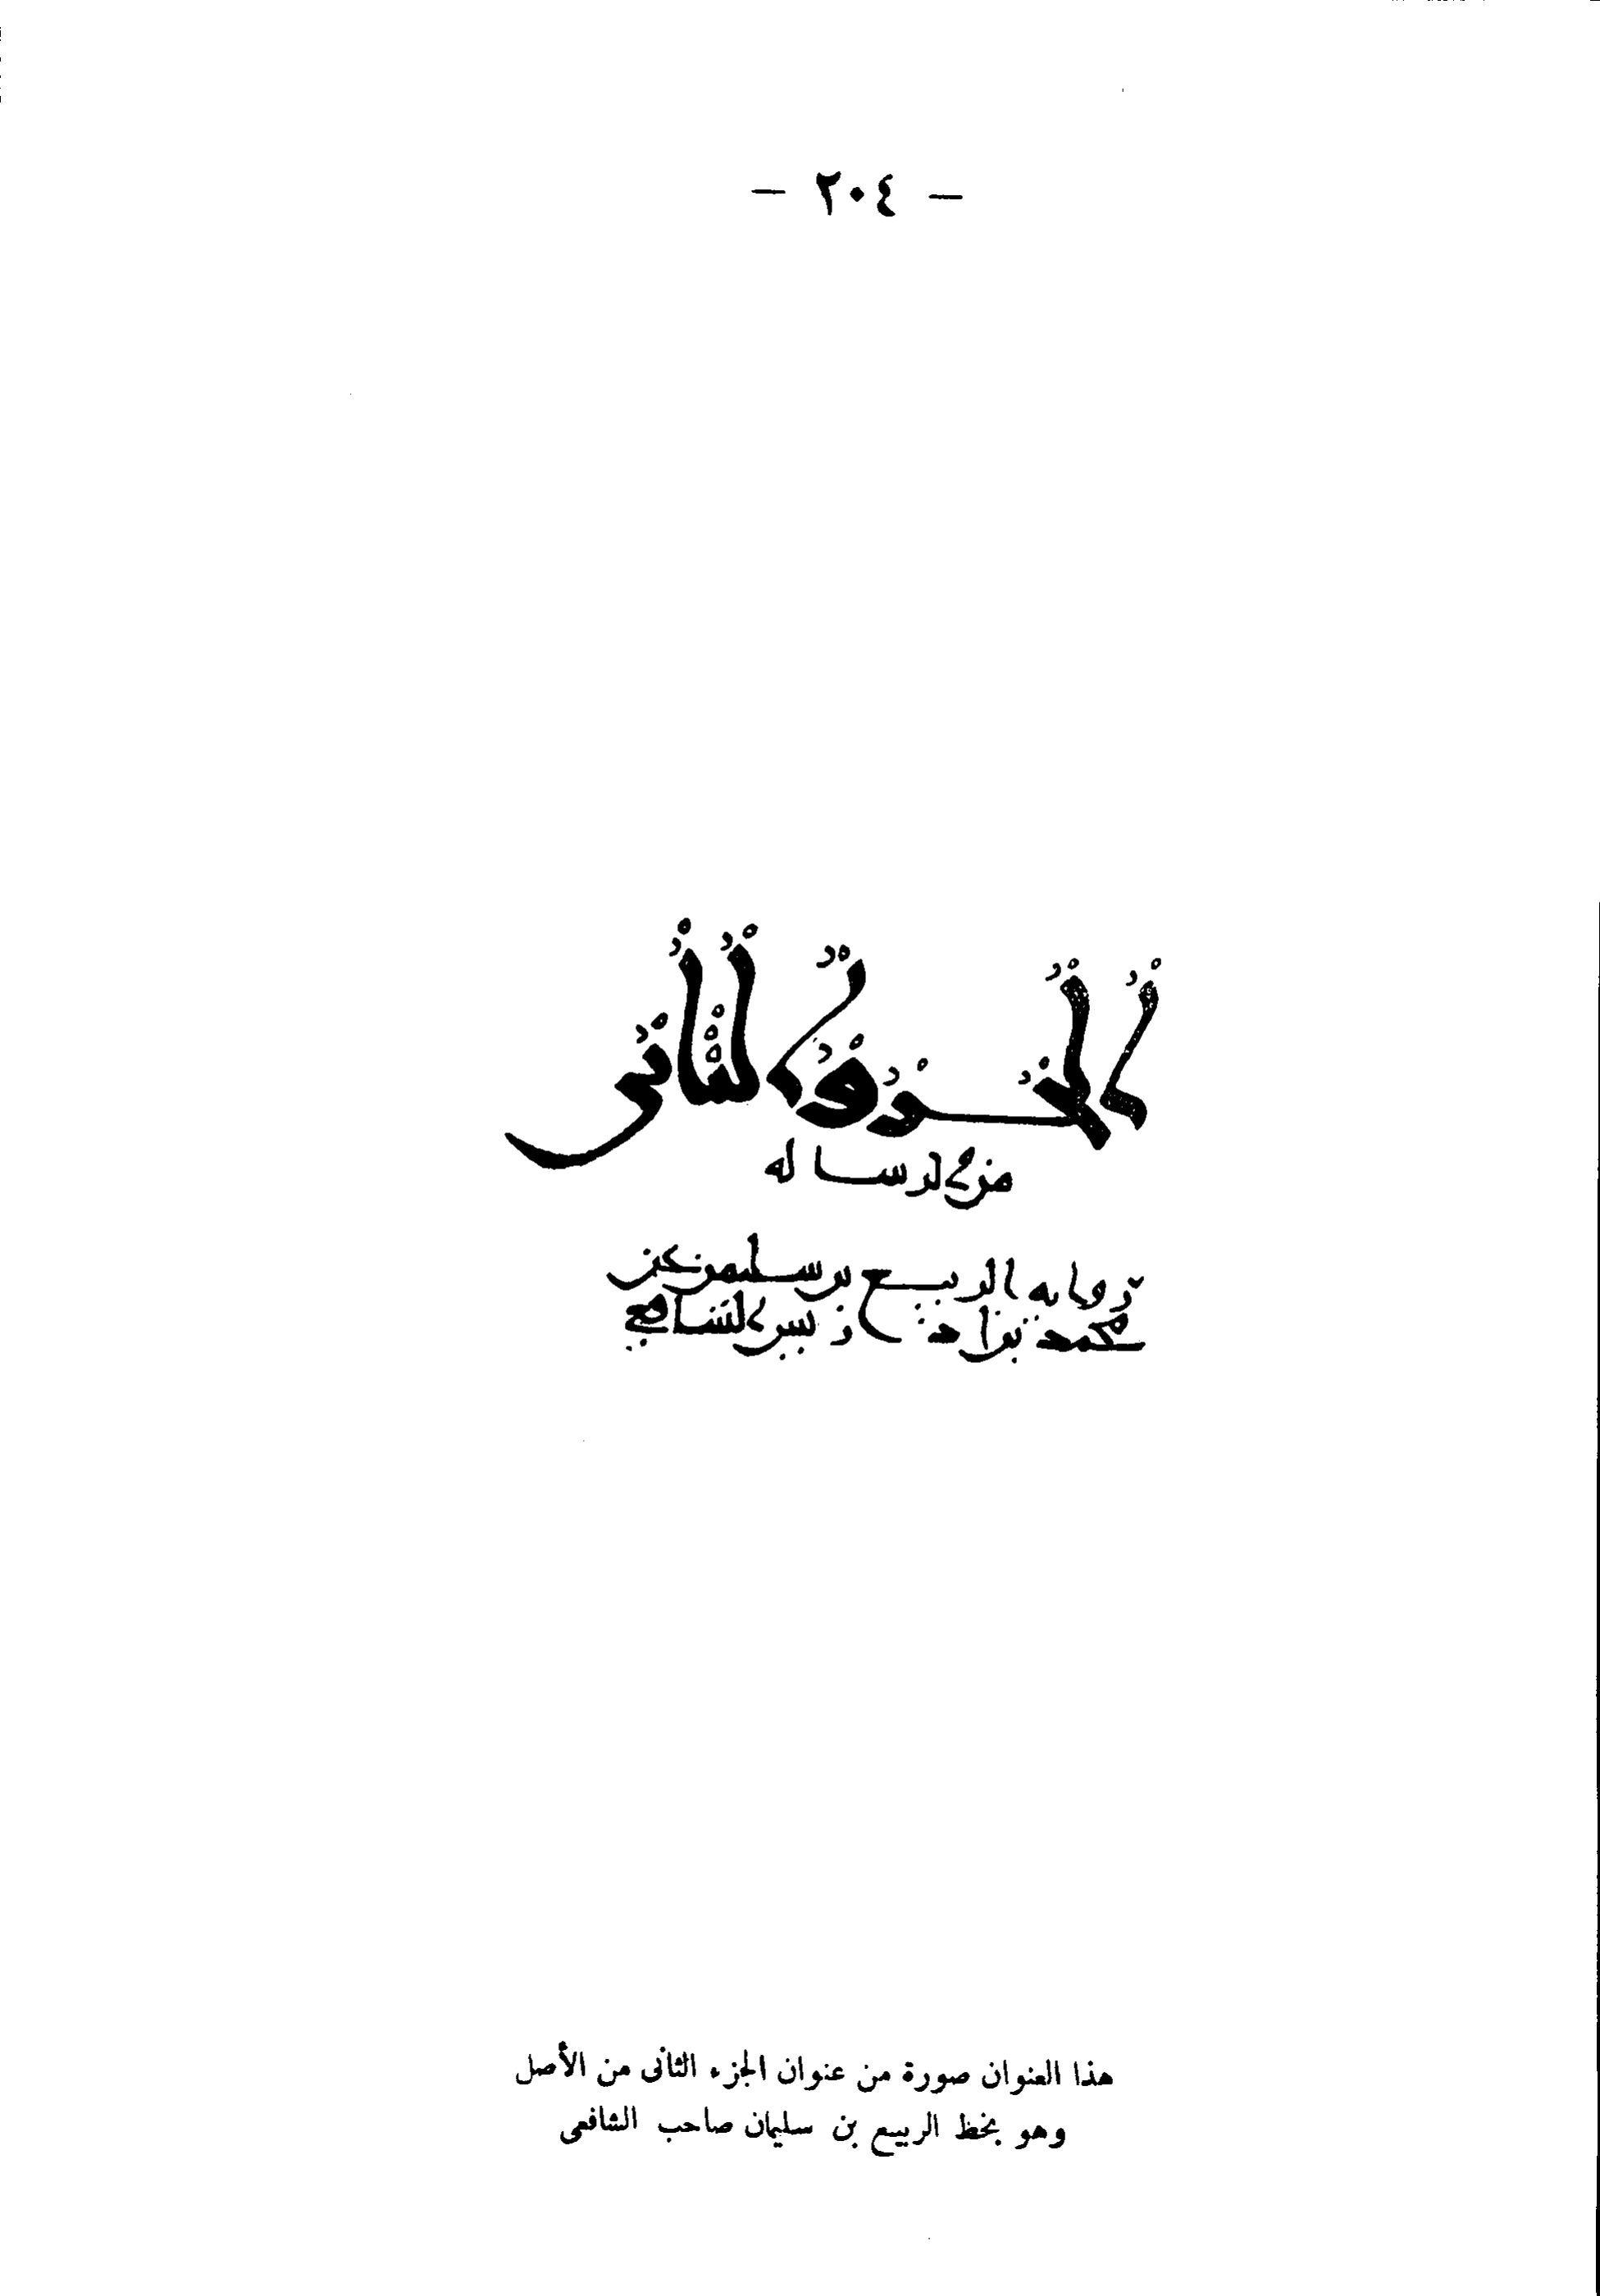 — ٢٠٤ —
الجزو الثاني
من الرساله
روايه الربيع بن سليمن عن
محمد بن ادريس الشافعي
هذا العنوان صورة من عنوان الجزء الثانى من الأصل
وهو بخط الربيع بن سليمان صاحب الشافعى